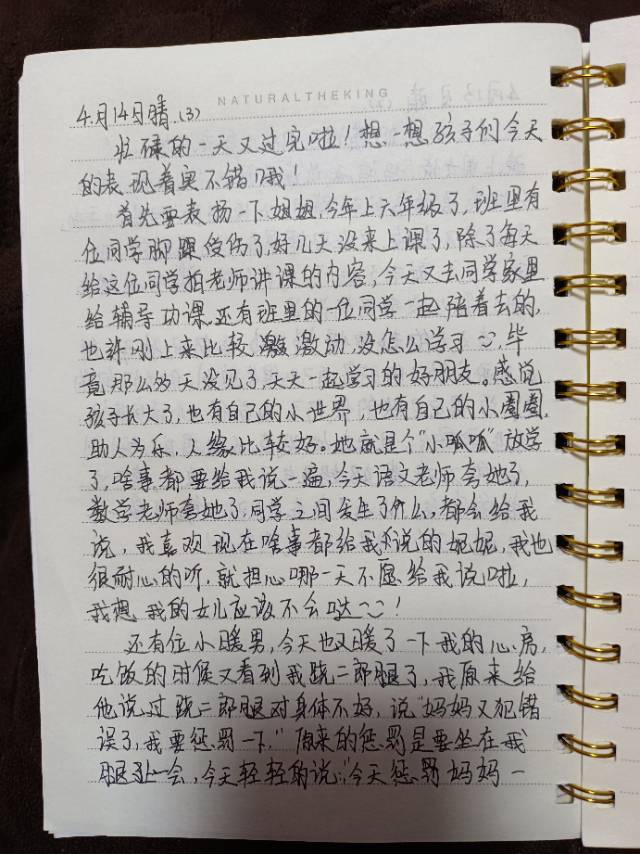 NATURALTHEKING
4月14日晴 (3)
忙碌的一天又过完啦！想一想孩子们今天
的表现着实不错哦！
首先要表扬一下姐姐，今年上六年级了，班里有
位同学脚踝受伤了，好几天没来上课了，除了每天
给这位同学拍老师讲课的内容，今天又去同学家里
给辅导功课，还有班里的一位同学一起陪着去的，
也许刚上来比较激动，没怎么学习，毕
竟那么多天没见了，天天一起学习的好朋友。感觉
孩子长大了，也有自己的小世界，也有自己的小圈圈，
助人为乐，人缘比较好。她就是个“小呱呱”放学
了，啥事都要给我说一遍，今天语文老师夸她了，
数学老师夸她了，同学之间发生了什么，都会给我
说，我喜欢现在啥事都给我说的妮妮，我也
很耐心的听，就担心哪一天不愿给我说啦，
我想我的女儿应该不会哒~~！
还有位小暖男，今天也又暖了一下我的心房，
吃饭的时候又看到我跷二郎腿了，我原来给
他说过跷二郎腿对身体不好，说“妈妈又犯错
误了，我要惩罚一下。”原来的惩罚是要坐在我
腿上一会，今天轻轻的说：“今天惩罚妈妈一